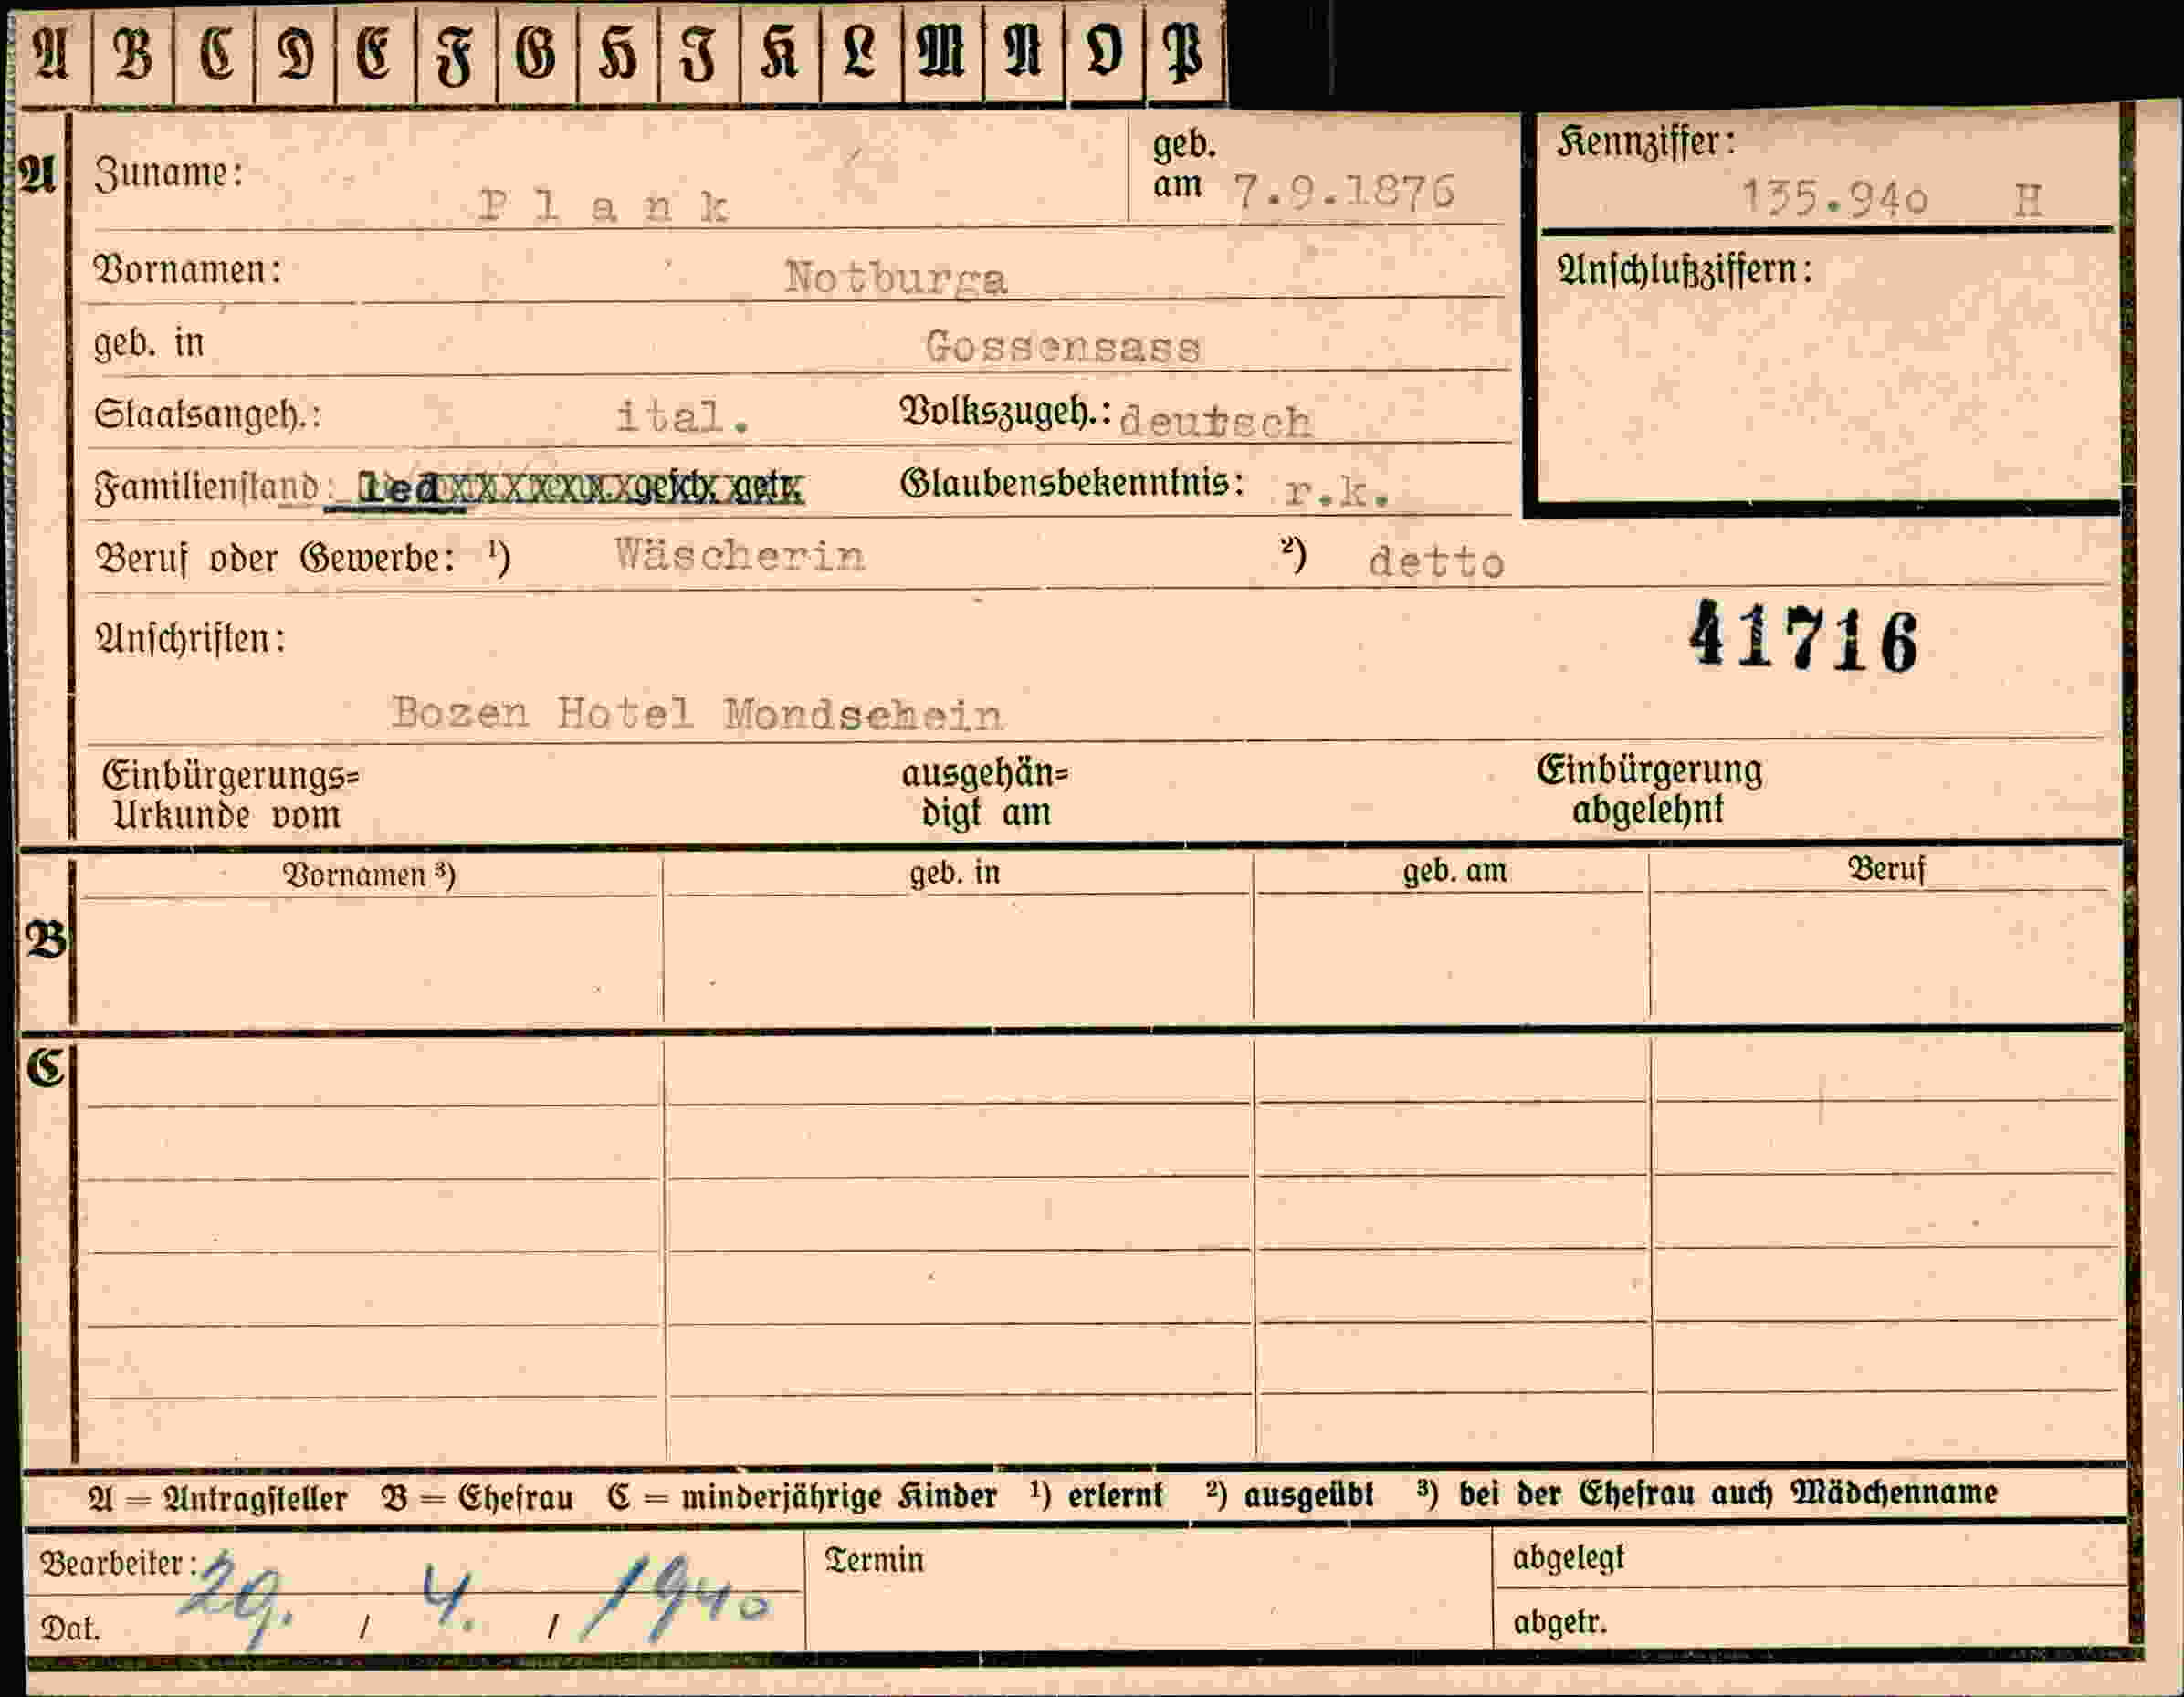 A B C D E F G H I K L M N O P
A
Zuname: Plank geb. am 7.9.1876
Kennziffer: 135.940 H
Vornamen: Notburga
Anschlußziffern:
geb. in Gossensass
Staatsangeh.: ital. Volkszugeh.: deutsch
Familienstand: led Glaubensbekenntnis: r.k.
Beruf oder Gewerbe: ¹) Wäscherin ²) detto
Anschriften: 41716
Bozen Hotel Mondschein
Einbürgerungs= ausgehän= Einbürgerung
Urkunde vom digt am abgelehnt
Vornamen ³) geb. in geb. am Beruf
B
C
A = Antragsteller B = Ehefrau C = minderjährige Kinder ¹) erlernt ²) ausgeübt ³) bei der Ehefrau auch Mädchenname
Bearbeiter: Termin abgelegt
Dat. 29. / 4. / 1940 abgetr.